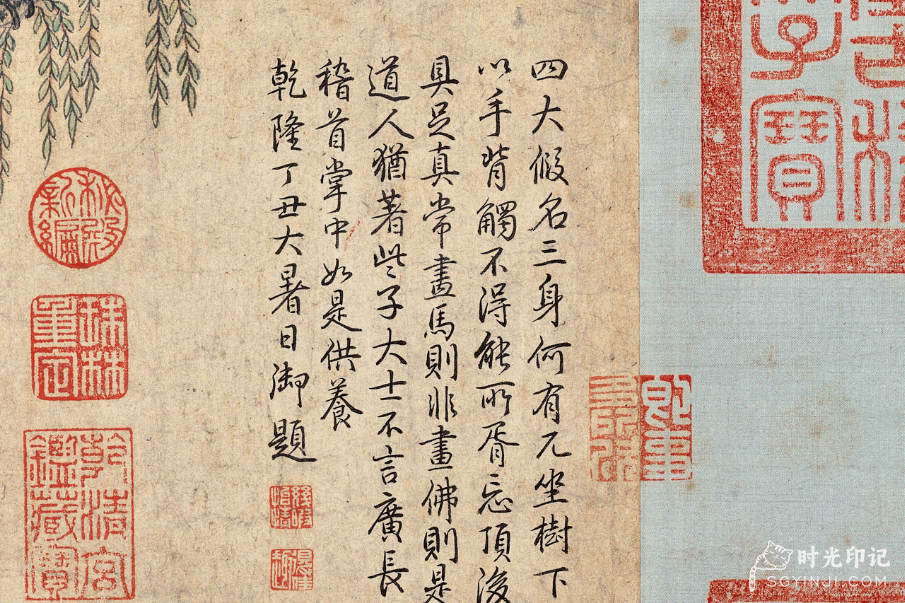 四大假名三身何有兀坐樹下
以手背觸不得能所胥忘頂後
具足真常畫馬則非畫佛則是
道人猶著些子大士不言廣長
稽首掌中如是供養
乾隆丁丑大暑日御題
乾清宮
鑑藏寶
珠林
重定
秘殿
新編
時光印記
SGYINJI.COM